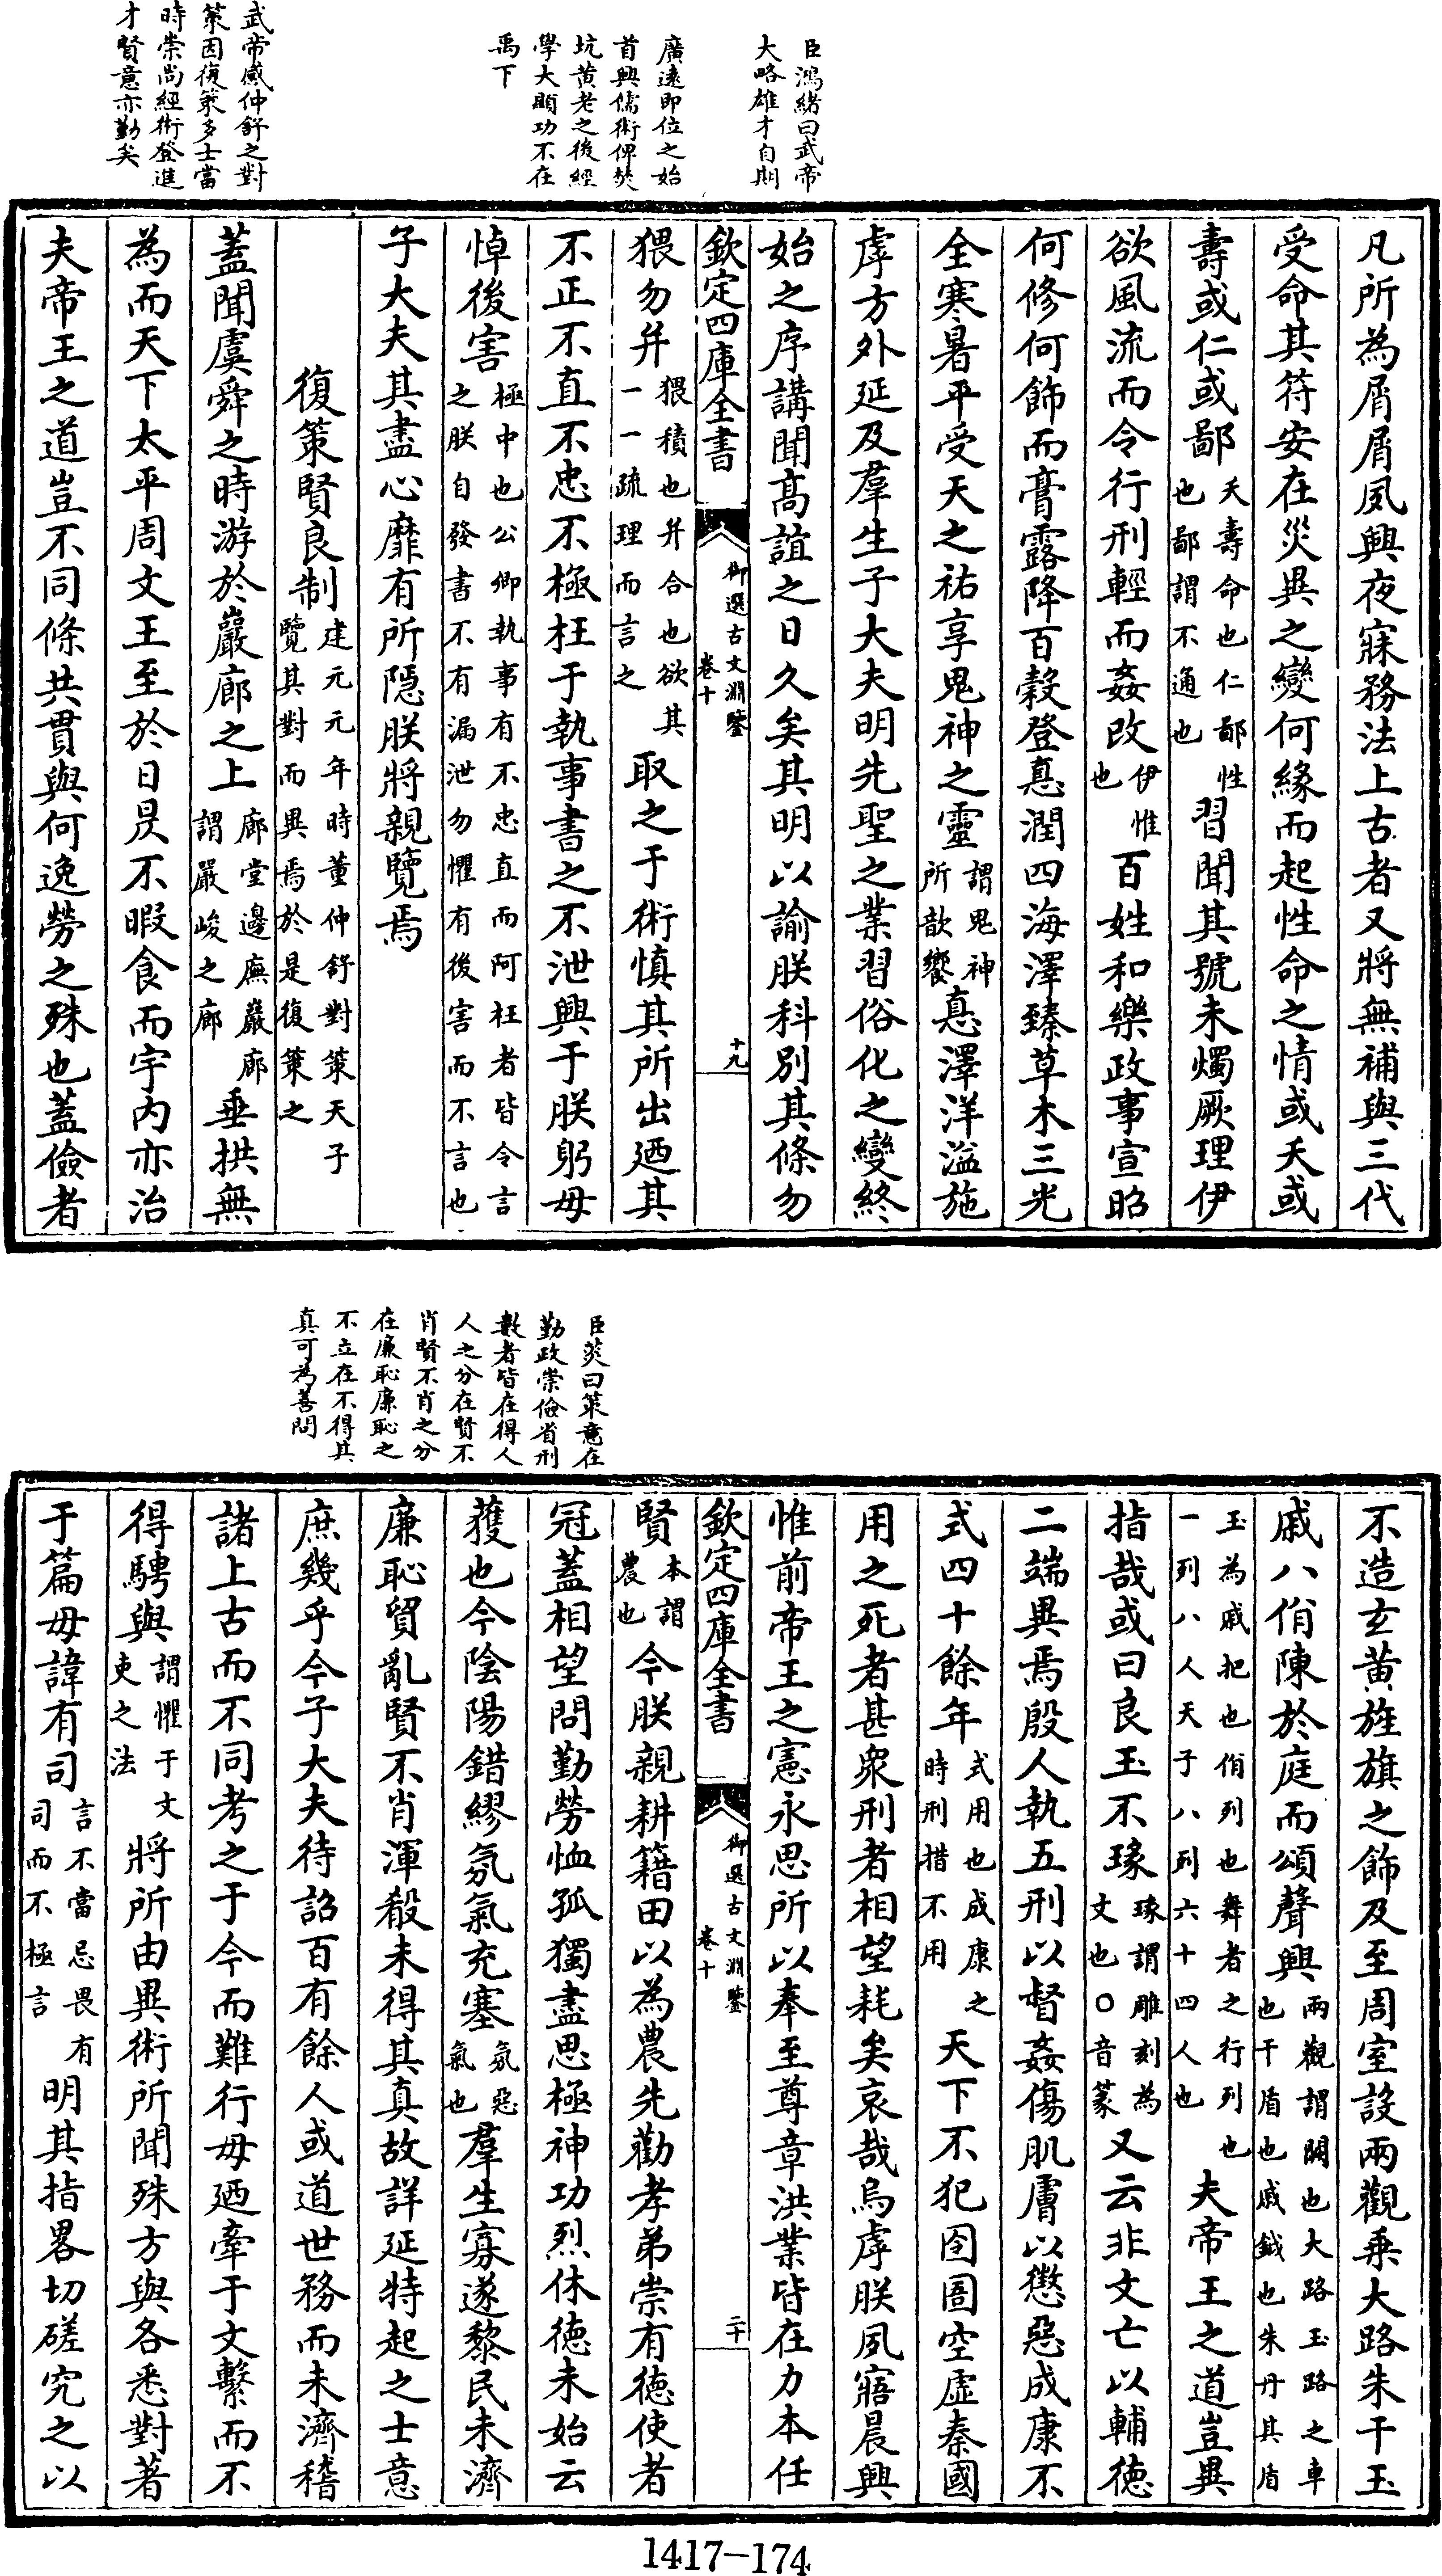 臣鴻緒曰武帝
大略雄才自期
廣遠即位之始
首興儒術俾焚
坑黄老之後經
學大顯功不在
禹下
武帝感仲舒之對
策因復策多士當
時崇尚經術登進
才賢意亦勤矣
凡所為屑屑夙興夜寐務法上古者又將無補與三代
受命其符安在災異之變何緣而起性命之情或夭或
壽或仁或鄙夭壽命也仁鄙性也鄙謂不通也習聞其號未燭厥理伊
欲風流而令行刑輕而姦改伊惟也百姓和樂政事宣昭
何修何飾而膏露降百穀登悳潤四海澤臻草木三光
全寒暑平受天之祐享鬼神之靈謂鬼神所歆饗悳澤洋溢施
虖方外延及羣生子大夫明先聖之業習俗化之變終
始之序講聞髙誼之日久矣其明以諭朕科別其條勿
欽定四庫全書
御選古文淵鑒
卷十
十九
猥勿并猥積也并合也欲其一一疏理而言之取之于術慎其所出廼其
不正不直不忠不極枉于執事書之不泄興于朕躬毋
悼後害極中也公卿執事有不忠直而阿枉者皆令言之朕自發書不有漏泄勿懼有後害而不言也
子大夫其盡心靡有所隠朕將親覽焉
復策賢良制建元元年時董仲舒對策天子覽其對而異焉於是復策之
蓋聞虞舜之時游於巖廊之上廊堂邊廡巖廊謂嚴峻之廊垂拱無
為而天下太平周文王至於日昃不暇食而宇内亦治
夫帝王之道豈不同條共貫與何逸勞之殊也蓋儉者
臣英曰策意在
勤政崇儉省刑
數者皆在得人
人之分在賢不
肖賢不肖之分
在廉恥廉恥之
不立在不得其
真可為善問
不造玄黄旌旗之飾及至周室設兩觀乗大路朱干玉
戚八佾陳於庭而頌聲興兩觀謂闕也大路玉路之車也干盾也戚鉞也朱丹其盾
玉為戚把也佾列也舞者之行列也一列八人天子八列六十四人也夫帝王之道豈異
指哉或曰良玉不瑑瑑謂雕刻為文也○音篆又云非文亡以輔徳
二端異焉殷人執五刑以督姦傷肌膚以懲惡成康不
式四十餘年式用也成康之時刑措不用天下不犯囹圄空虚秦國
用之死者甚衆刑者相望耗矣哀哉烏虖朕夙寤晨興
惟前帝王之憲永思所以奉至尊章洪業皆在力本任
欽定四庫全書
御選古文淵鑒
卷十
二十
賢本謂農也今朕親耕籍田以為農先勸孝弟崇有徳使者
冠蓋相望問勤勞恤孤獨盡思極神功烈休徳未始云
獲也今陰陽錯繆氛氣充塞氛惡氣也羣生寡遂黎民未濟
廉恥貿亂賢不肖渾殽未得其真故詳延特起之士意
庶幾乎今子大夫待詔百有餘人或道世務而未濟稽
諸上古而不同考之于今而難行毋廼牽于文繫而不
得騁與謂懼于文吏之法將所由異術所聞殊方與各悉對著
于篇毋諱有司言不當忌畏有司而不極言明其指畧切磋究之以
1417-174